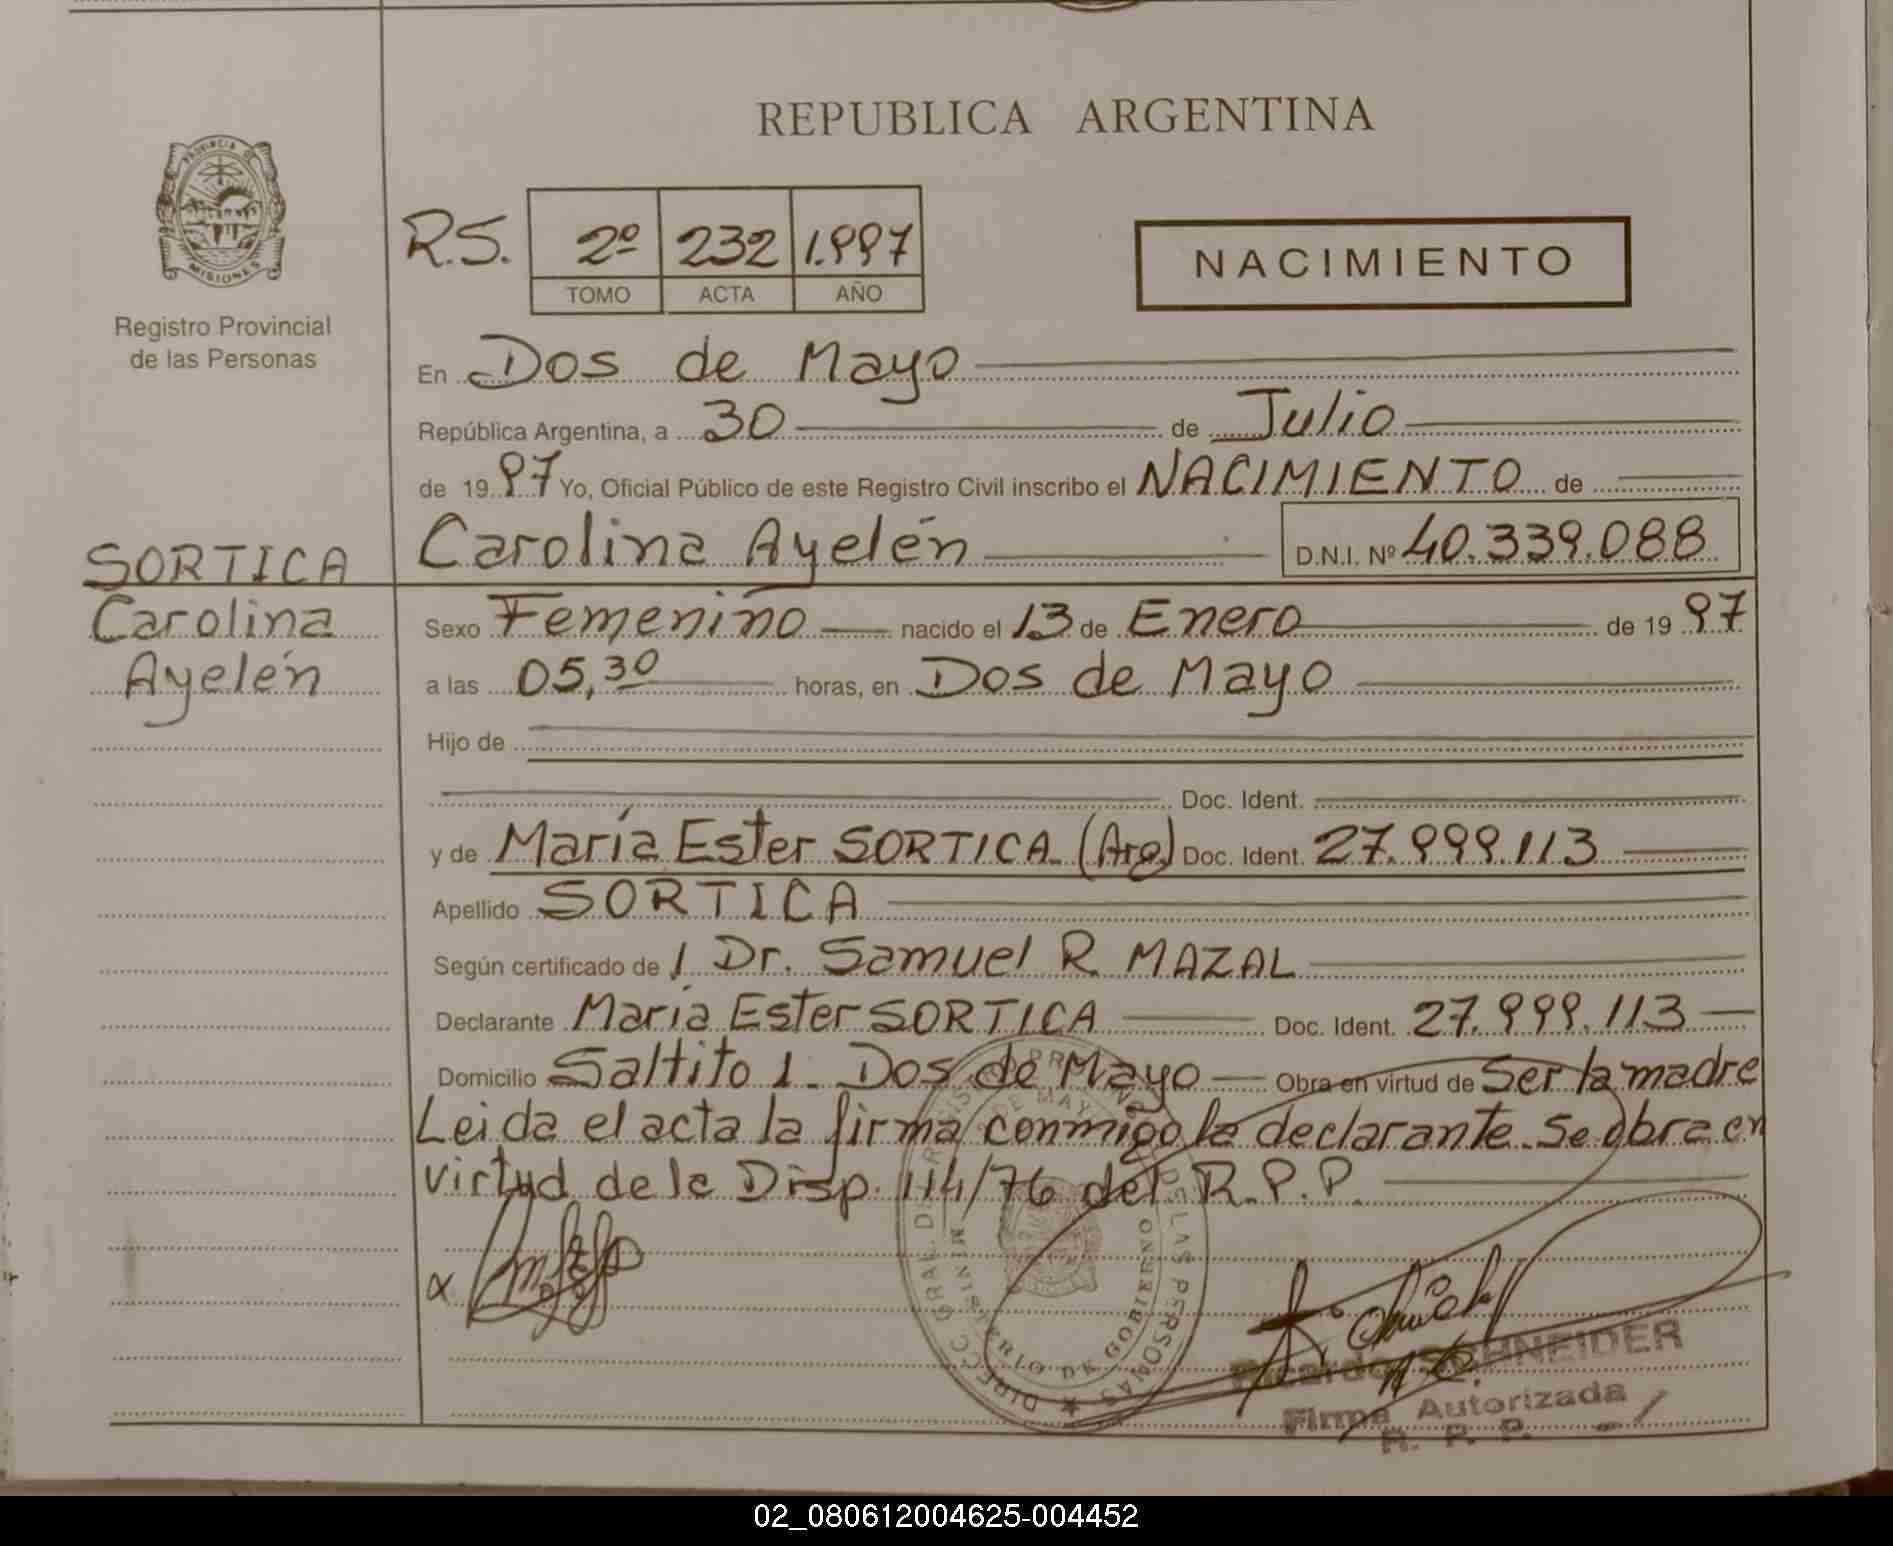 REPUBLICA ARGENTINA
PROVINCIA DE MISIONES
Registro Provincial
de las Personas
R.S. 2º 232 1.997
TOMO ACTA AÑO
NACIMIENTO
En Dos de Mayo
República Argentina, a 30 de Julio
de 1997 Yo, Oficial Público de este Registro Civil inscribo el NACIMIENTO de
Carolina Ayelén D.N.I. Nº 40.339.088
SORTICA
Carolina
Ayelén
Sexo Femenino nacido el 13 de Enero de 1997
a las 05,30 horas, en Dos de Mayo
Hijo de
Doc. Ident.
y de María Ester SORTICA (Arg) Doc. Ident. 27.999.113
Apellido SORTICA
Según certificado de 1. Dr. Samuel R. MAZAL
Declarante María Ester SORTICA Doc. Ident. 27.999.113
Domicilio Saltito 1. Dos de Mayo Obra en virtud de Ser la madre
Leida el acta la firma conmigo la declarante. Se obra en
virtud de la Disp. 114/76 del R.P.P.
MINISTERIO DE GOBIERNO
Ricardo SCHNEIDER
Firma Autorizada
R. P. P.
02_080612004625-004452